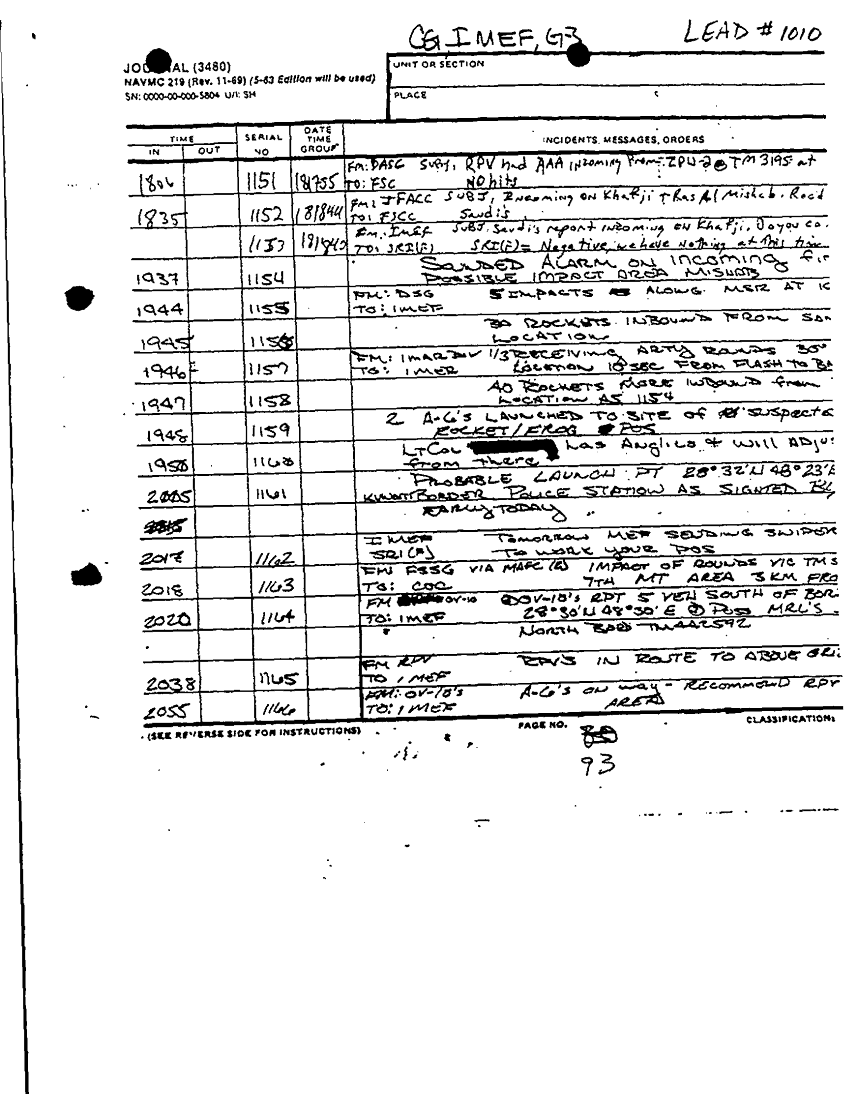 CG, I MEF, G3 LEAD # 1010
JOURNAL (3480)
NAVMC 219 (Rev. 11-69) (5-63 Edition will be used)
SN: 0000-00-000-5804 U/I: SH
UNIT OR SECTION
PLACE
TIME
IN OUT
SERIAL NO
DATE TIME GROUP
INCIDENTS, MESSAGES, ORDERS
1806 1151 181755 FM: DASC SUBJ, RPV had AAA Incoming from ZPU-2 @ TM 3195 at
TO: FSC NO hits
1835 1152 181844 FM: JFACC SUBJ, Incoming on Khafji + Ras Al Mishab. Rocd
TO: FSCC Saudis
1153 FM: IMEF SUBJ. Saudi's report incoming on Khafji. Do you co
TO: SRI(F) SRI(F) = Negative, we have nothing at this time
1937 1154 SOUNDED ALARM ON INCOMING fir
POSSIBLE IMPACT AREA MISHAB
1944 1155 FM: DSG 5 IMPACTS ALONG MSR AT
TO: IMEF
1945 1156 30 ROCKETS INBOUND FROM SAM
LOCATION
1946 1157 FM: 1MARDIV 1/3 RECEIVING ARTY ROUNDS
TO: IMEF LOCATION 10 SEC FROM FLASH TO BA
1947 1158 40 ROCKETS MORE INBOUND from
LOCATION AS 1154
1948 1159 2 A-6's LAUNCHED TO SITE OF SUSPECTE
ROCKET/FROG POS
1950 1160 LTCOL has Anglico + will ADJU
from there
2005 1161 PROBABLE LAUNCH PT 28° 32'N 48° 23'E
KUWAIT BORDER POLICE STATION AS SIGNTED BY
EARLY TODAY
2017 1162 I MEF TOMORROW MEF SENDING SNIPER
SRI(F) TO WORK YOUR POS
2018 1163 FM: FSSG VIA MAFC (R) IMPACT OF ROUNDS VIC TM 5
TO: COC 7TH MT AREA 3KM FRO
2020 1164 FM OV-10 OV-10's RPT 5 VEH SOUTH OF BOR
TO: IMEF 28° 30'N 48° 30' E POSS MRL'S
NORTH BORD
2038 1165 FM RPV RPV'S IN ROUTE TO ABOVE GRI
TO IMEF
2055 1166 FM: OV-10's A-6's ON WAY - RECOMMEND RPV
TO: IMEF AREA
(SEE REVERSE SIDE FOR INSTRUCTIONS) PAGE NO. CLASSIFICATION:
93